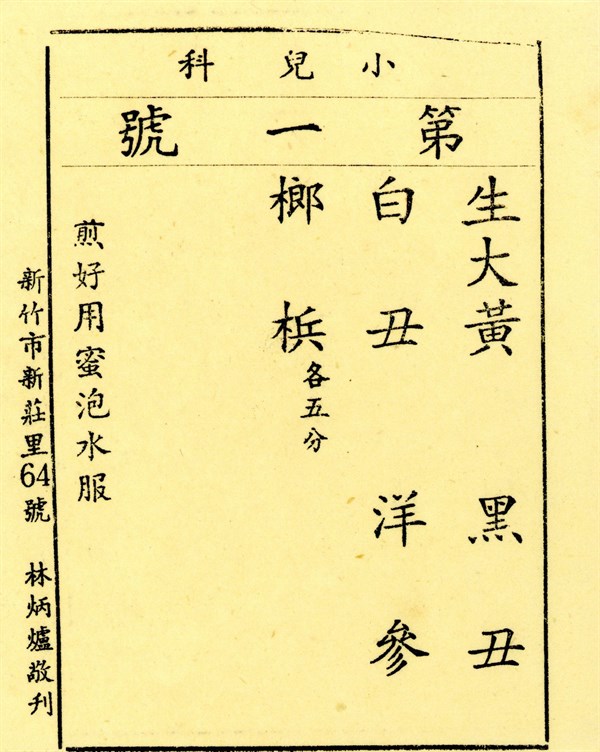 小兒科
第一號
生大黃 黑丑
白丑 洋參
榔梹各五分
煎好用蜜泡水服
新竹市新莊里64號 林炳爐敬刋